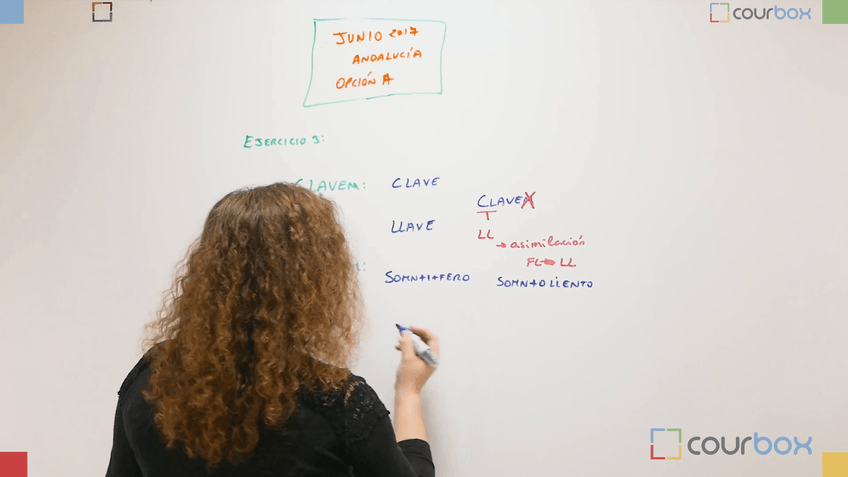 courbox
JUNIO 2017
ANDALUCÍA
OPCIÓN A
EJERCICIO 3:
CLAVEM: CLAVE
CLAVEM
LLAVE
LL
→ asimilación
FL LL
SOMN+I+FERO SOMN+OLIENTO
courbox